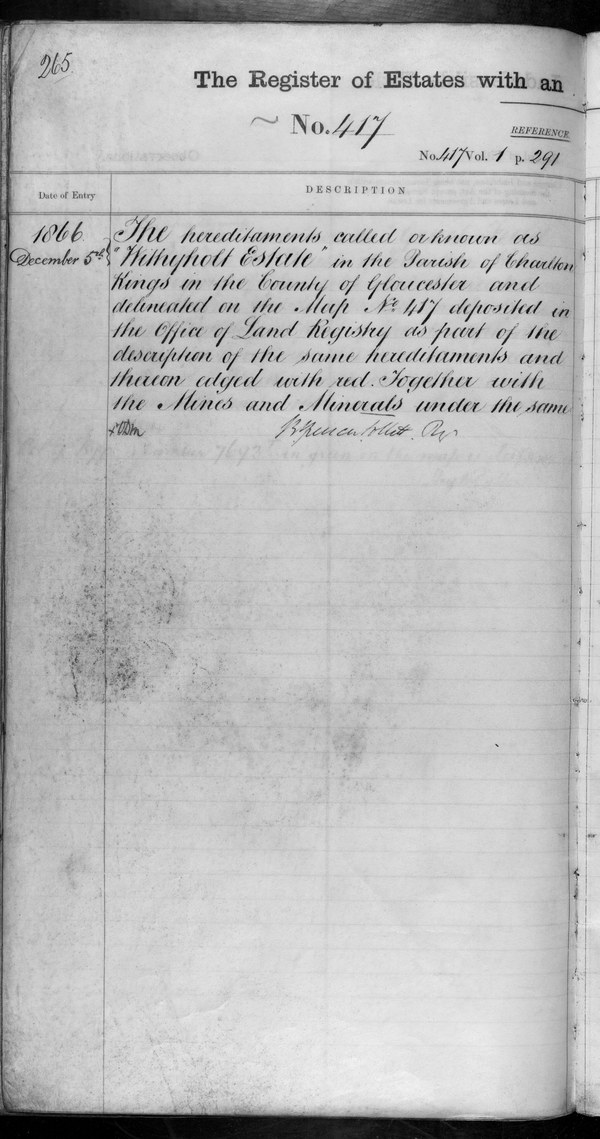 265
The Register of Estates with an
No. 417
REFERENCE
No. 417 Vol. 1 p. 291
Date of Entry
DESCRIPTION
1866
December 5th
The hereditaments called or known as
"Withyholt Estate" in the Parish of Charlton
Kings in the County of Gloucester and
delineated on the Map No 417 deposited in
the Office of Land Registry as part of the
description of the same hereditaments and
thereon edged with red. Together with
the Mines and Minerals under the same